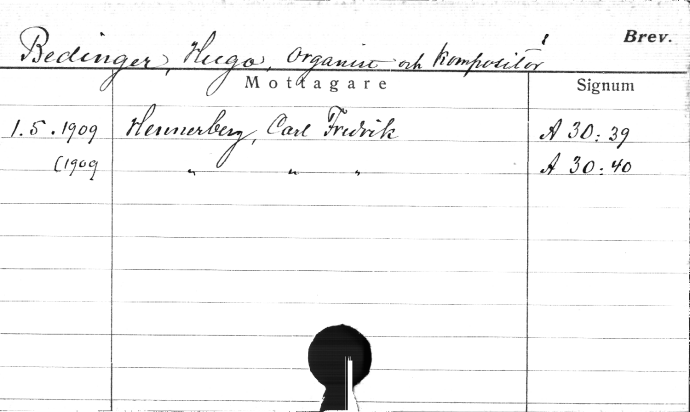 Brev.
Bedinger, Hugo, Organist och Kompositör
Mottagare Signum
1.5.1909 Hennerberg, Carl Fredrik A 30:39
(1909 " " " A 30:40